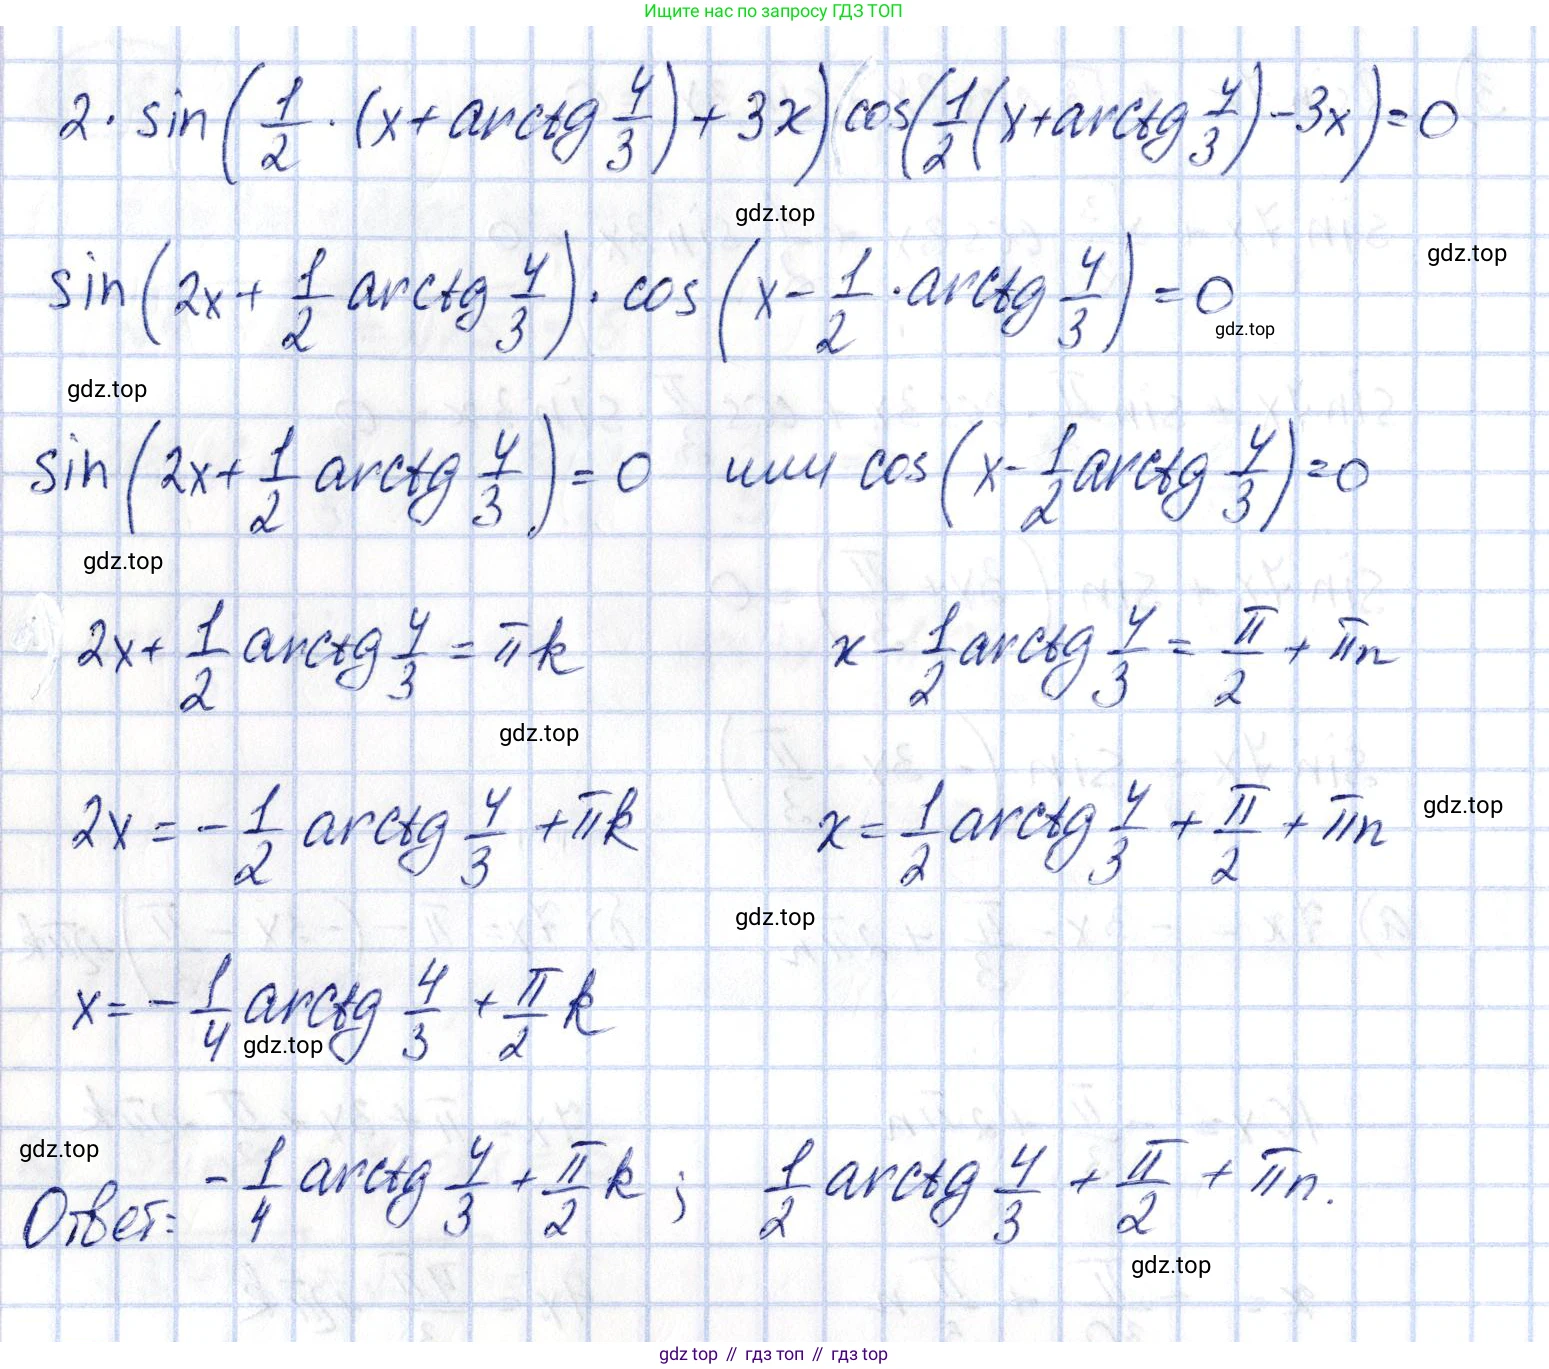 Ищите нас по запросу ГДЗ ТОП
2 · sin(1/2 · (x + arctg 4/3) + 3x) cos(1/2 (x + arctg 4/3) - 3x) = 0
gdz.top
gdz.top
sin(2x + 1/2 arctg 4/3) · cos(x - 1/2 · arctg 4/3) = 0
gdz.top
gdz.top
sin(2x + 1/2 arctg 4/3) = 0 или cos(x - 1/2 arctg 4/3) = 0
gdz.top
2x + 1/2 arctg 4/3 = πk x - 1/2 arctg 4/3 = π/2 + πn
gdz.top
2x = - 1/2 arctg 4/3 + πk x = 1/2 arctg 4/3 + π/2 + πn
gdz.top
gdz.top
x = - 1/4 arctg 4/3 + π/2 k
gdz.top
gdz.top
Ответ: - 1/4 arctg 4/3 + π/2 k ; 1/2 arctg 4/3 + π/2 + πn.
gdz.top
gdz top // гдз топ // гдз top